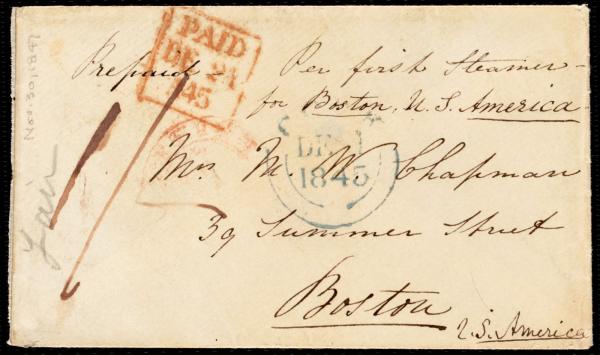 PAID
DE 24
1845
Prepaid - Per first Steamer -
for Boston, U.S. America -
DE
1845
Mrs M. W. Chapman
39 Summer Street
Boston
U.S. America
1/